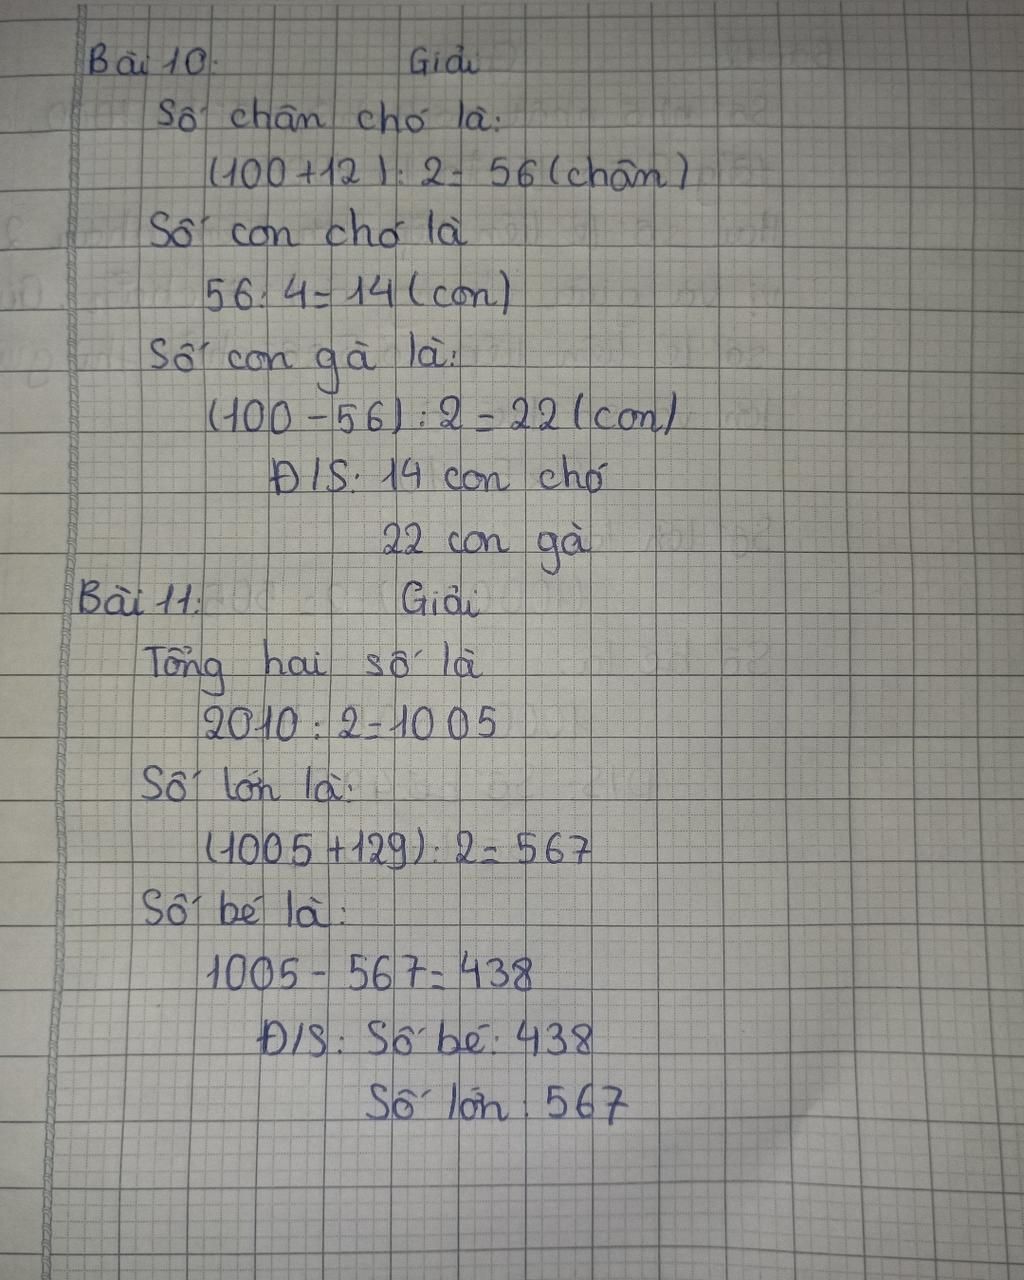 Bài 10: Giải
Số chân chó là:
(100+12) : 2 = 56 (chân)
Số con chó là
56 : 4 = 14 (con)
Số con gà là:
(100 - 56) : 2 = 22 (con)
Đ/S: 14 con chó
22 con gà
Bài 11: Giải
Tổng hai số là
2010 : 2 = 1005
Số lớn là:
(1005 + 129) : 2 = 567
Số bé là:
1005 - 567 = 438
Đ/S: Số bé: 438
Số lớn : 567